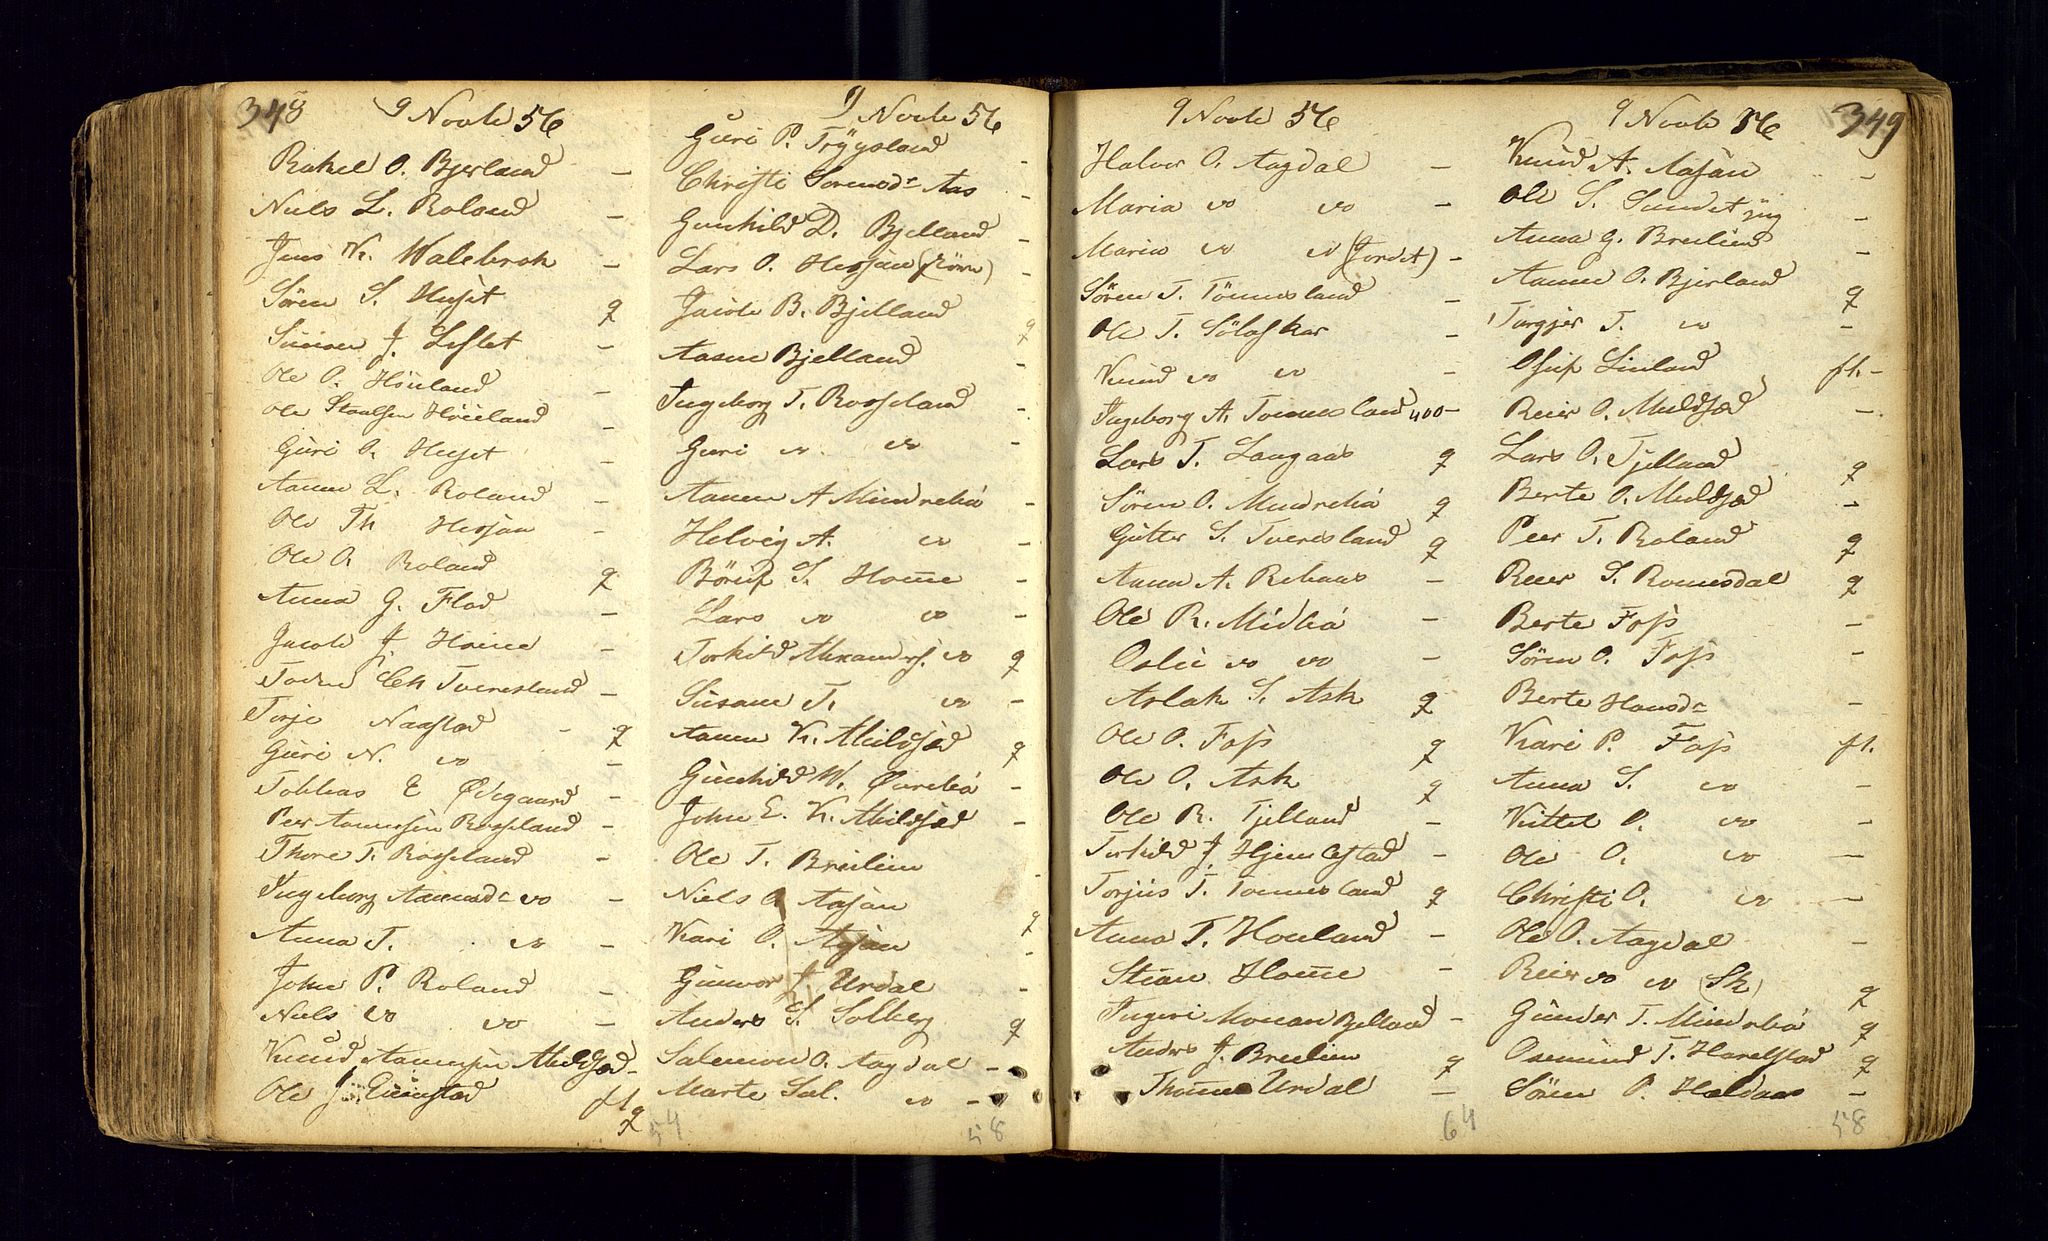 348
9 Novb 56
Rakel O. Bjerland -
Niels L. Roland -
Jens K. Walebrok -
Sören S. Huset q
Simon J. Leslet -
Ole O. Höiland -
Ole Staalsen Höieland -
Guri O. Huset -
Aanen L. Roland -
Ole Th Hessaa -
Ole O. Roland q
Anna G. Flad -
Jacob J. Home -
Tveresland -
Torje Naastad - q
Guri N. do -
Tobias E Ødegaard -
Peer Aanensen Rosseland -
Thore T. Rosseland -
Ingeborg Aanensdr do -
Anna T. do -
John P. Roland -
Niels do do -
Knud Aanensen Mildsæd -
Ole J. Einestad ft. q
54
9 Novb 56
Guri P. Trygsland -
Christi Sorensdr Aas -
Gunhild D. Bjelland -
Lars O. -
Jacob B. Bjelland q
Aasne Bjelland -
Ingeborg T. Rosseland -
Guri do do -
Aanen A Mindrebö -
Helvig A. do -
Böruf S. Home -
Lars do do -
Torkild do q
Susane T. do -
Aanen K. Mildsæd q
Gunhild W. Øvrebö -
John E. K. Mildsæd -
Ole T. Breilien -
Niels O. Aasan q
Kari O. Aasan -
Gunvor J Urdal -
Anders S. Solberg q
Salemon O. Aagdal -
Marte Sal. do -
58
9 Novb 56
Halvor O. Aagdal -
Maria do do -
Maria do do (Jordet) -
Sören T. Tönnesland -
Ole T. Sölaskar -
Knud do do -
Ingeborg A. Tonnesland 400 -
Lars T. Langaas q
Sören O. Mindrebö q
Gutter S. Tveresland q
Aanen A. Rebaas -
Ole R. Midbö -
do do -
Aslak S. Ask q
Ole O. Foss q
Ole O. Ask q
Ole R. Tjelland -
Torkild J. Hjemlestad -
Torjus T. Tonnesland q
Anna T. Houland -
Stian Home -
Ingeri Monsen Bjelland -
Anders J. Breilien q
Thomas Urdal -
64
9 Novb 56
349
Knud A. Aasan -
Ole S. Sundet jug -
Anna G. Breilien -
Aanen O. Bjerland q
Torgjer T. do -
Osuf Linland ft. -
Reier O. Mildsæd -
Lars O. Tjelland q
Berte O. Mildsæd -
Peer T. Roland q
Reier S. Romesdal q
Berte Foss -
Sören O. Foss -
Berte Hansdr -
Kari P. Foss ft.
Anna S. do -
Kittel O. do -
Ole O. do -
Christi O. do -
Ole O. Aagdal -
Reier do do (Sk) q
Gunder T. Mindrebö q
Osemund T. Harelstad q
Sören P. Haldaas -
58